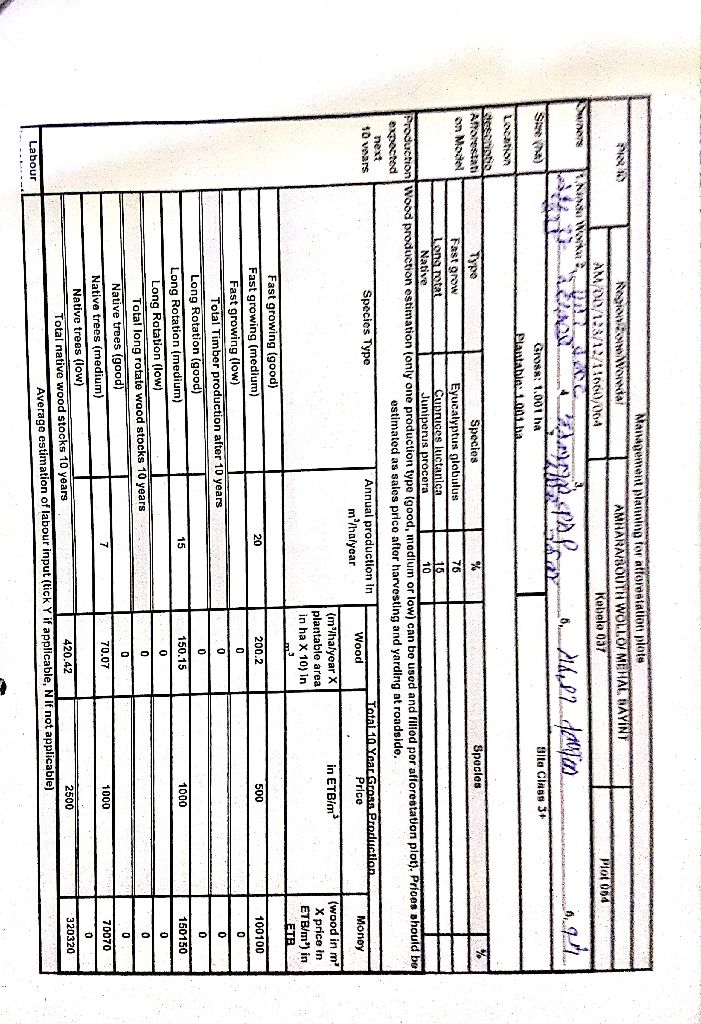 Management planning for afforestation plots
Plot ID Region/Zone/Woreda/ AMHARA/SOUTH WOLLO/ MEHAL SAYINT Plot 064
AM/00/123/12/11660/064 Kebele 037
Owners 1. 2. 3.
4. 5. 6.
Size (ha) Gross: 1.001 ha Site Class 3+
Plantable: 1.001 ha
Location
descriptio
Afforestati on Model Type Species % Species %
Fast grow Eyucalyptus globulus 75
Long rotat Cupruces luctanica 15
Native Juniperus procera 10
Production expected next 10 years
Wood production estimation (only one production type (good, medium or low) can be used and filled per afforestation plot). Prices should be
estimated as sales price after harvesting and yarding at roadside.
Species Type Annual production in m³/ha/year Total 10 Year Gross Production
Wood Price Money
(m³/ha/year X plantable area in ha X 10) in m³ in ETB/m³ (wood in m³ X price in ETB/m³) in ETB
Fast growing (good)
Fast growing (medium) 20 200.2 500 100100
Fast growing (low) 0 0
Total Timber production after 10 years 0
Long Rotation (good) 0 0
Long Rotation (medium) 15 150.15 1000 150150
Long Rotation (low) 0 0
Total long rotate wood stocks 10 years 0 0
Native trees (good) 0 0
Native trees (medium) 7 70.07 1000 70070
Native trees (low) 0 0
Total native wood stocks 10 years 420.42 2500 320320
Labour Average estimation of labour input (tick Y if applicable, N if not applicable)